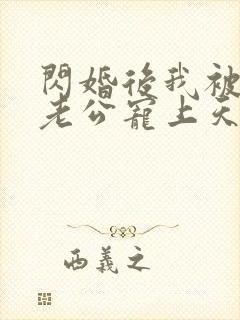 閃婚後我被
老公寵上天
西義之